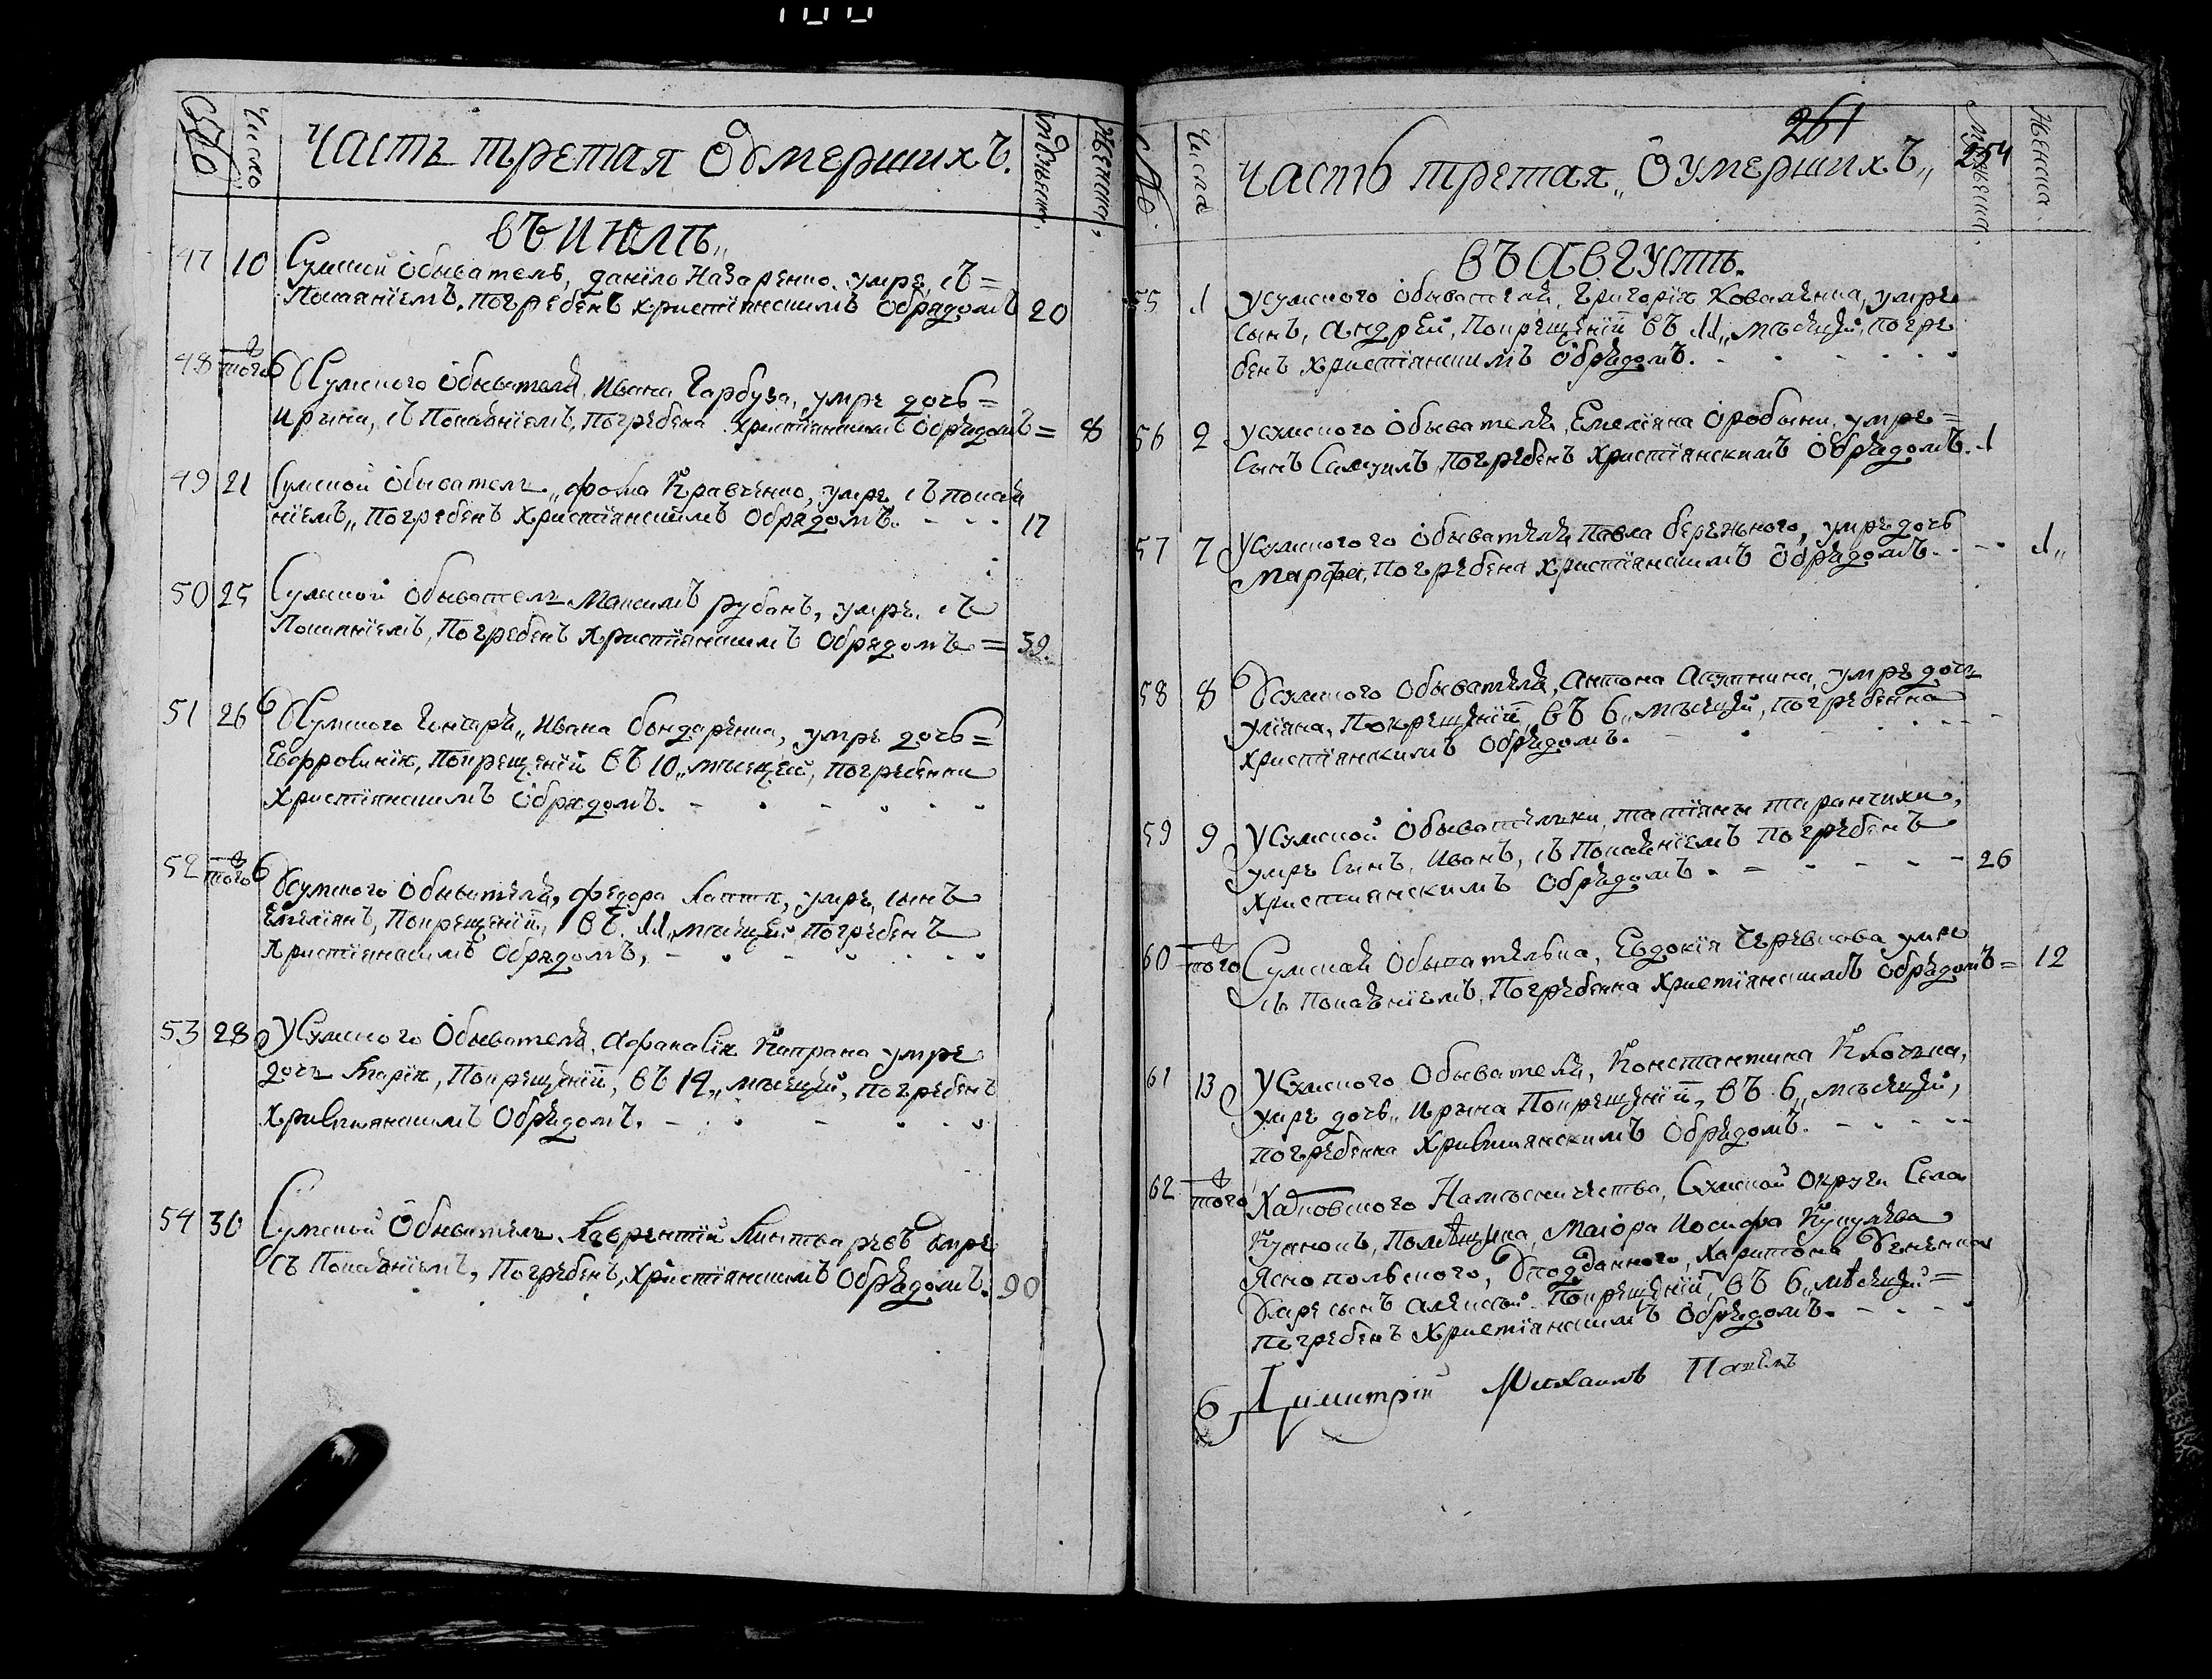 Число
Часть третая Обмерших.
въ июлѣ
47 10 Сумской обыватель, данїло Назаренко умре, съ =
Покаянїемъ, погребенъ христїянскимъ обрядомъ 20
48 того Усумского обывателя, Ивана Гарбуза, умре дочь =
ирына, съ Покаянїемъ, погребена христїянскимъ обрядомъ = 8
49 21 Сумской обыватель, фома Кравченко, умре съ покая
нїемъ, погребенъ христїянскимъ обрядомъ. 17
50 25 Сумской обыватель Максимъ рубанъ, умре, съ
Покаянїемъ, Погребенъ христїянскимъ обрядомъ = 59.
51 26 Усумского Гончаря, Ивана бондаренка, умре дочь =
Евфросинїя, Покрещенїи въ 10, мѣсяцей, погребенна
христїянскимъ обрядомъ.
52 того Усумского обывателя, федора Лаптя, умре, сынъ
Емелїянъ, Покрещенїи, въ 11, мѣсяцей погребенъ
христїянскимъ обрядомъ,
53 28 Усумского обывателя, Афанасїя Капрана умре
дочь Марїя, Покрещенїи, въ 14, мѣсяцей, погребенъ
християнскимъ обрядомъ.
54 30 Сумской обыватель Лаврентїй Линтваревъ умре
съ Покаянїемъ, Погребенъ, христїянскимъ обрядомъ. 90
261
254
Числа
Женска.
часть третая, О умершихъ,
въ августѣ.
55 1 Усумского обывателя, Григорїя Коваленка, умре
сынъ, андрей, Покрещенїи въ 11, мѣсяцей, погре
бенъ христїянскимъ обрядомъ.
56 2 Усумского обывателя, Емелїяна Оробыни, умре =
Сынъ Самуилъ, погребенъ христїянскимъ обрядомъ. 1
57 7 Усумского обывателя, Павла бережного, умре дочь
Марфа, погребена христїянскимъ обрядомъ. 1,
58 8 Усумского обывателя, антона умре дочь
улїяна, Покрещенїи, въ 6, мѣсяцей, погребенна
христїянскимъ обрядомъ.
59 9 Усумской обывательки, татїяны таранчихи,
умре Сынъ, Иванъ, съ Покаянїемъ погребенъ
християнскимъ обрядомъ. 26
60 того Сумская обывателька, Евдокїя Черевкова умре
съ Покаянїемъ, Погребенна христїянскимъ обрядомъ = 12
61 13 Усумского обывателя, Константина Клочка,
умре дочь, ирына Покрещенїи, въ 6, мѣсяцей,
погребенна християнскимъ обрядомъ.
62 того Харковского Намѣсничества, Сумской округи Села
Куяновъ, Помѣщика, Маїора Иосифа Кукулѣва
Яснопольского, Уподданного, Харитона
Умре сынъ алексѣй Покрещенїи, въ 6, мѣсяцей =
погребенъ христїянскимъ обрядомъ.
Димитрїй Михаиловъ